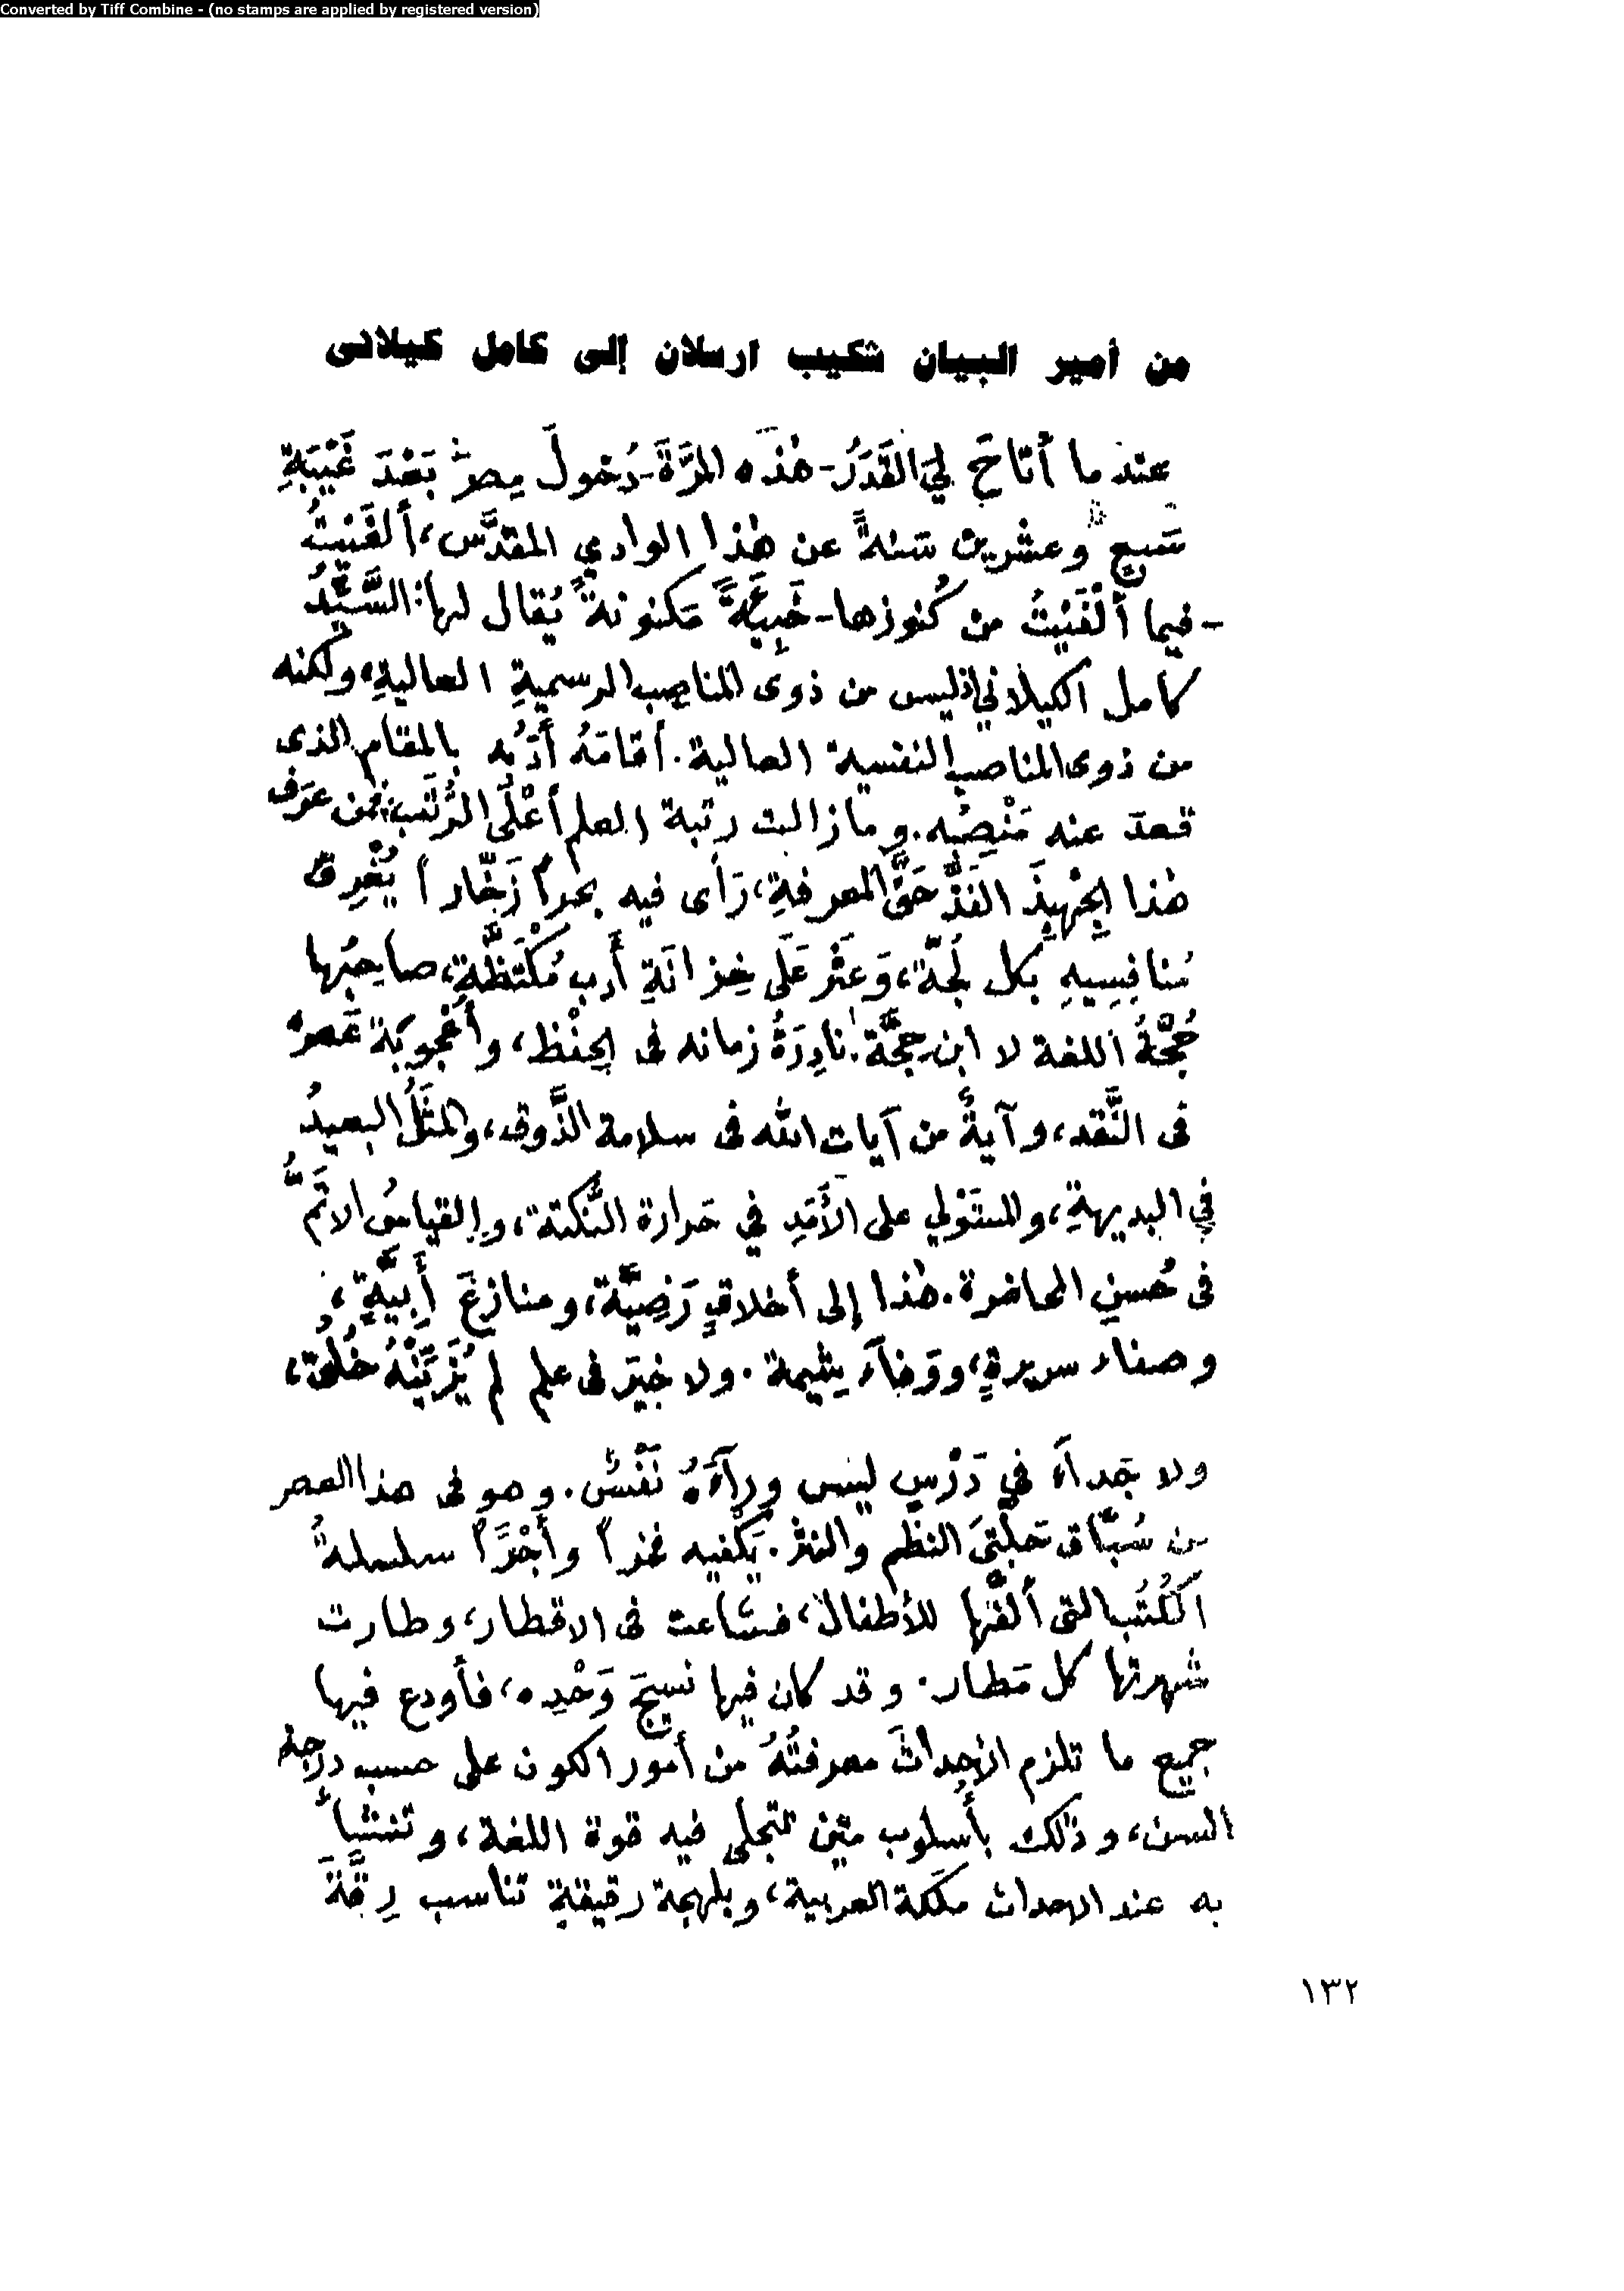 Converted by Tiff Combine - (no stamps are applied by registered version)
من أمير البيان شكيب ارسلان إلى كامل كيلانى
عندما أتاحَ لِيَ القَدَرُ - هٰذه المرَّةَ - دُخولَ مِصرَ بَعْدَ غَيْبَةِ
سَبعٍ وعشرين سَنةً عن هٰذا الوادي المقدَّس، ألفَيْتُ
- فيما ألْفَيْتُ من كُنوزها - خَبِيئَةً مَكنونةً يُقال لها: السَّيِّدُ
كامل الكيلاني، ليس من ذوى المناصب الرسميةِ العاليةِ، ولكنه
من ذوى المناصب النفسية العالية. أقامَهُ أدَبُه بالمقام الذى
قعدَ عنه مَنْصِبُه. وما زالت رتبة العلم أعْلَى الرُّتَب، فمن عرَف
هٰذا الجِهْبِذَ الفَذَّ حَقَّ المعرفةِ، رَأى فيه بحراً زَخَّاراً يُغْرِقُ
مُنافِسِيهِ بكل لُجَّة، وَعَثَر عَلَى خِزانَةِ أدبٍ مُكْتَظَّةٍ، صاحِبُها
حُجَّةُ اللغة لا ابن حِجَّة. نادِرَةُ زمانه فى الحِفْظ، وأُعْجوبَة عَصرهِ
فى النَّقد، وآيةٌ من آيات الله فى سلامة الذَّوق، والمثَلُ البعيدُ
فِي البديهةِ، والمستَوْلي على الأَمَدِ في حَرارة النُّكتة، والقياسُ الاتَمُّ
فى حُسنِ المحاضرة. هٰذا إلى أخلاقٍ رَضِيَّة، ومنازعَ أَبِيَّةٍ،
وصفاء سريرةٍ، ووَفاَء شِيمة. ولا خَيرَ فى علمٍ لم يُزَيِّنْهُ خُلُقٌ،
ولا جَداَءَ في دَرْسٍ ليس وراَءَهُ نَفْسٌ. وهو فى هذا العصر
من سُبّاق حَلْبَتَيِ النظْم والنثر. يَكْفيه فخراً وأجْرًا سلسلةُ
الكُتُب التى ألفَّها للأطفال، فشاعت فى الاقطار، وطارت
شهرتها كل مَطار. وقد كان فيها نَسيجَ وَحْدِه، فأودع فيها
جميع ما تلزم الأحداثَ معرفتُهُ من أمور الكون على حسب درجة
السن، وذلك بأُسلوب متين تتجلى فيه قوة اللغة، وتنشأ
به عند الاحداث ملَكة العربية، وبلهجة رقيقةٍ تناسب رِقَّةَ
١٣٢